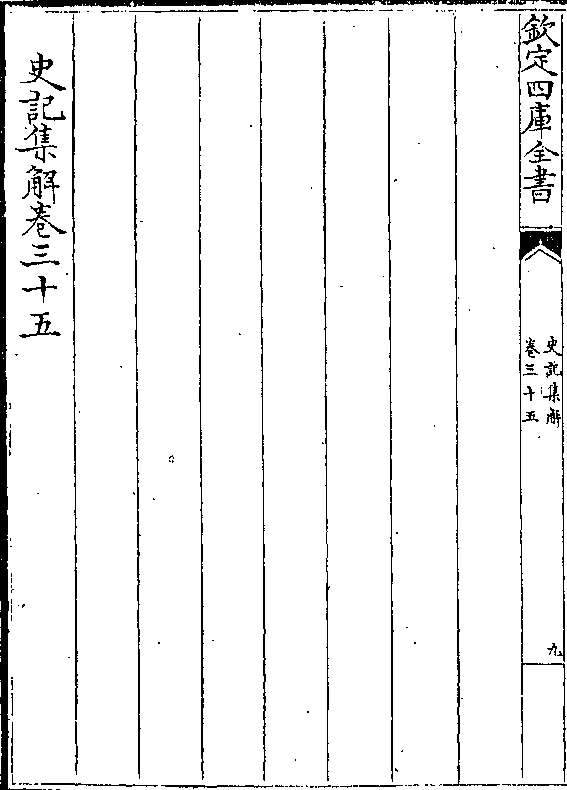 欽定四庫全書
史記集解
卷三十五
九
史記集解卷三十五